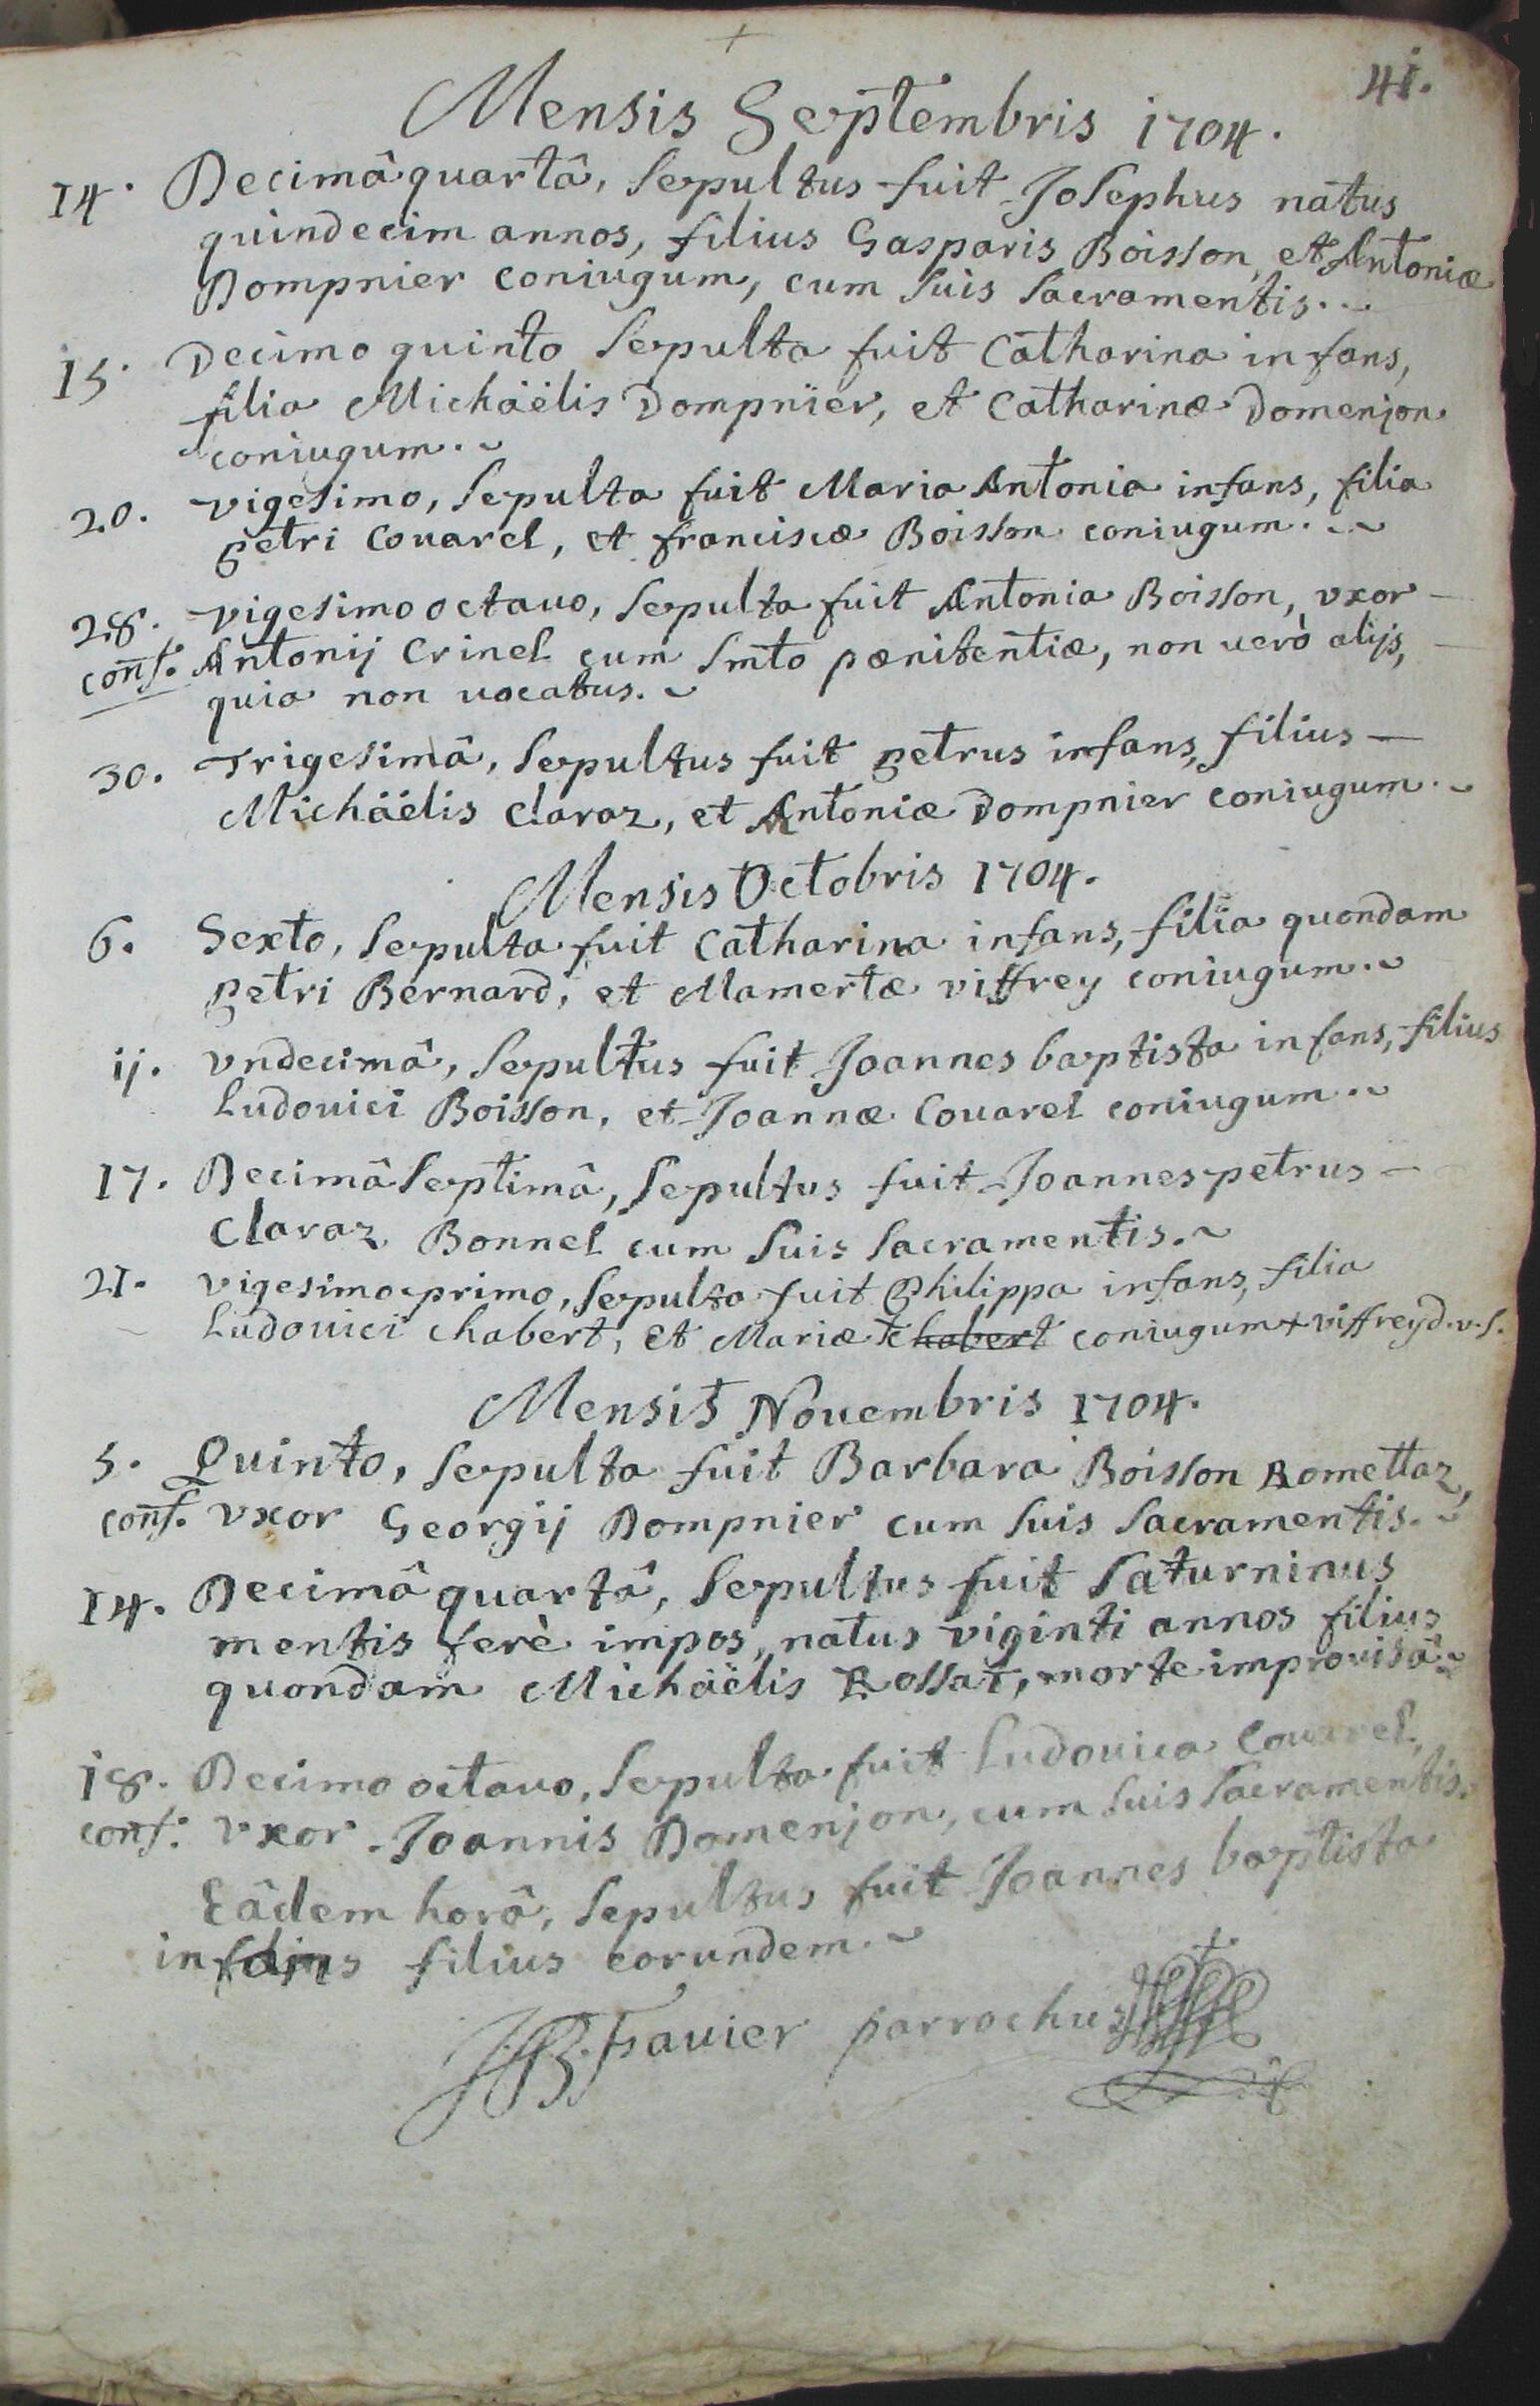 41.
Mensis Septembris 1704.
14. Decimâ quartâ, Sepultus fuit Josephus natus
quindecim annos, filius Gasparis Boisson, et Antoniæ
Dompnier coniugum, cum suis sacramentis.
15. Decimo quinto Sepulta fuit Catharina infans,
filia Michäëlis Dompnier, et Catharinæ Domenjon
coniugum.
20. vigesimo, Sepulta fuit Maria Antonia infans, filia
petri Couarel, et franciscæ Boisson coniugum.
28. vigesimo octauo, Sepulta fuit Antonia Boisson, vxor
conf. Antonij Crinel cum Smto pænitentiæ, non uerò alijs,
quia non uocatus.
30. Trigesimâ, Sepultus fuit petrus infans, filius
Michäëlis Claraz, et Antoniæ Dompnier coniugum.
Mensis Octobris 1704.
6. Sexto, Sepulta fuit Catharina infans, filia quondam
petri Bernard, et Mamertæ viffrey coniugum.
ij. vndecimâ, Sepultus fuit Joannes baptista infans, filius
Ludouici Boisson, et Joannæ Couarel coniugum.
17. Decimâ Septimâ, Sepultus fuit Joannes petrus
Claraz Bonnel cum Suis Sacramentis.
21. vigesimo primo, Sepulta fuit Philippa infans, filia
Ludouici chabert, et Mariæ + chabert coniugum + viffrey d.v.s.
Mensis Nouembris 1704.
5. Quinto, Sepulta fuit Barbara Boisson Romettaz,
conf. vxor Georgij Dompnier cum suis sacramentis.
14. Decimâ quartâ, Sepultus fuit Saturninus
mentis ferè impos, natus viginti annos filius
quondam Michäëlis Rossat, morte improuisâ
18. Decimo octauo, Sepulta fuit Ludouica Couarel,
conf. vxor Joannis Domenjon, cum suis sacramentis.
Eâdem horâ, Sepultus fuit Joannes baptista
infans filius eorundem.
JB. Fauier parrochus